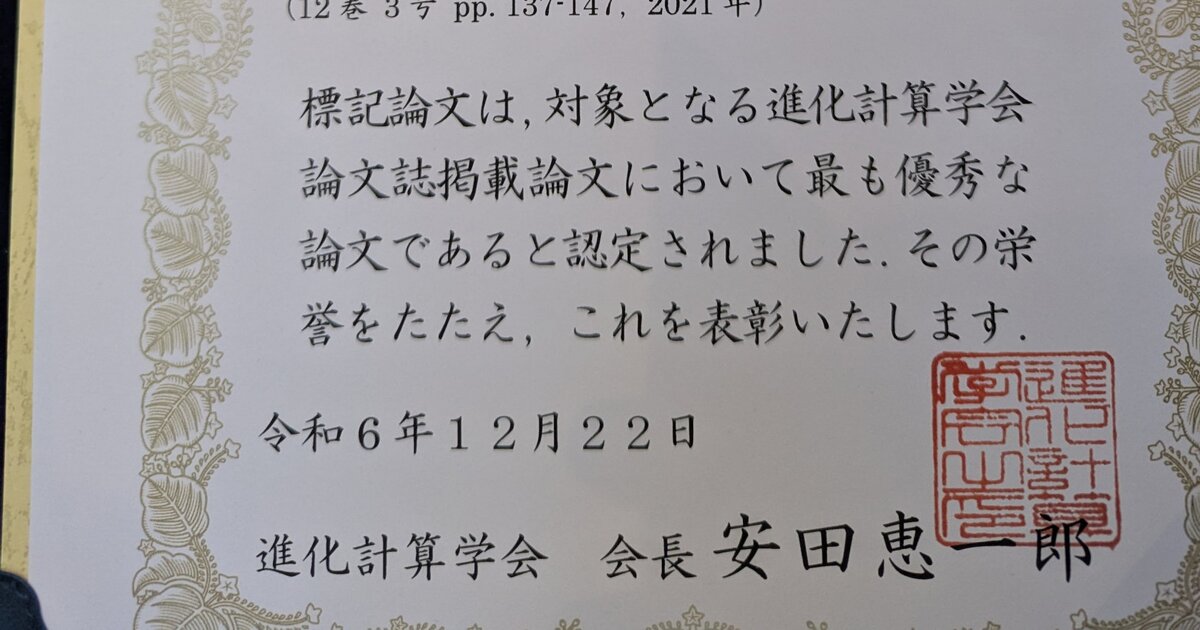 (12巻 3号 pp. 137-147, 2021年)
標記論文は, 対象となる進化計算学会
論文誌掲載論文において最も優秀な
論文であると認定されました. その栄
誉をたたえ, これを表彰いたします.
令和6年12月22日
進化計算学会 会長 安田恵一郎
進化計算
学会之印